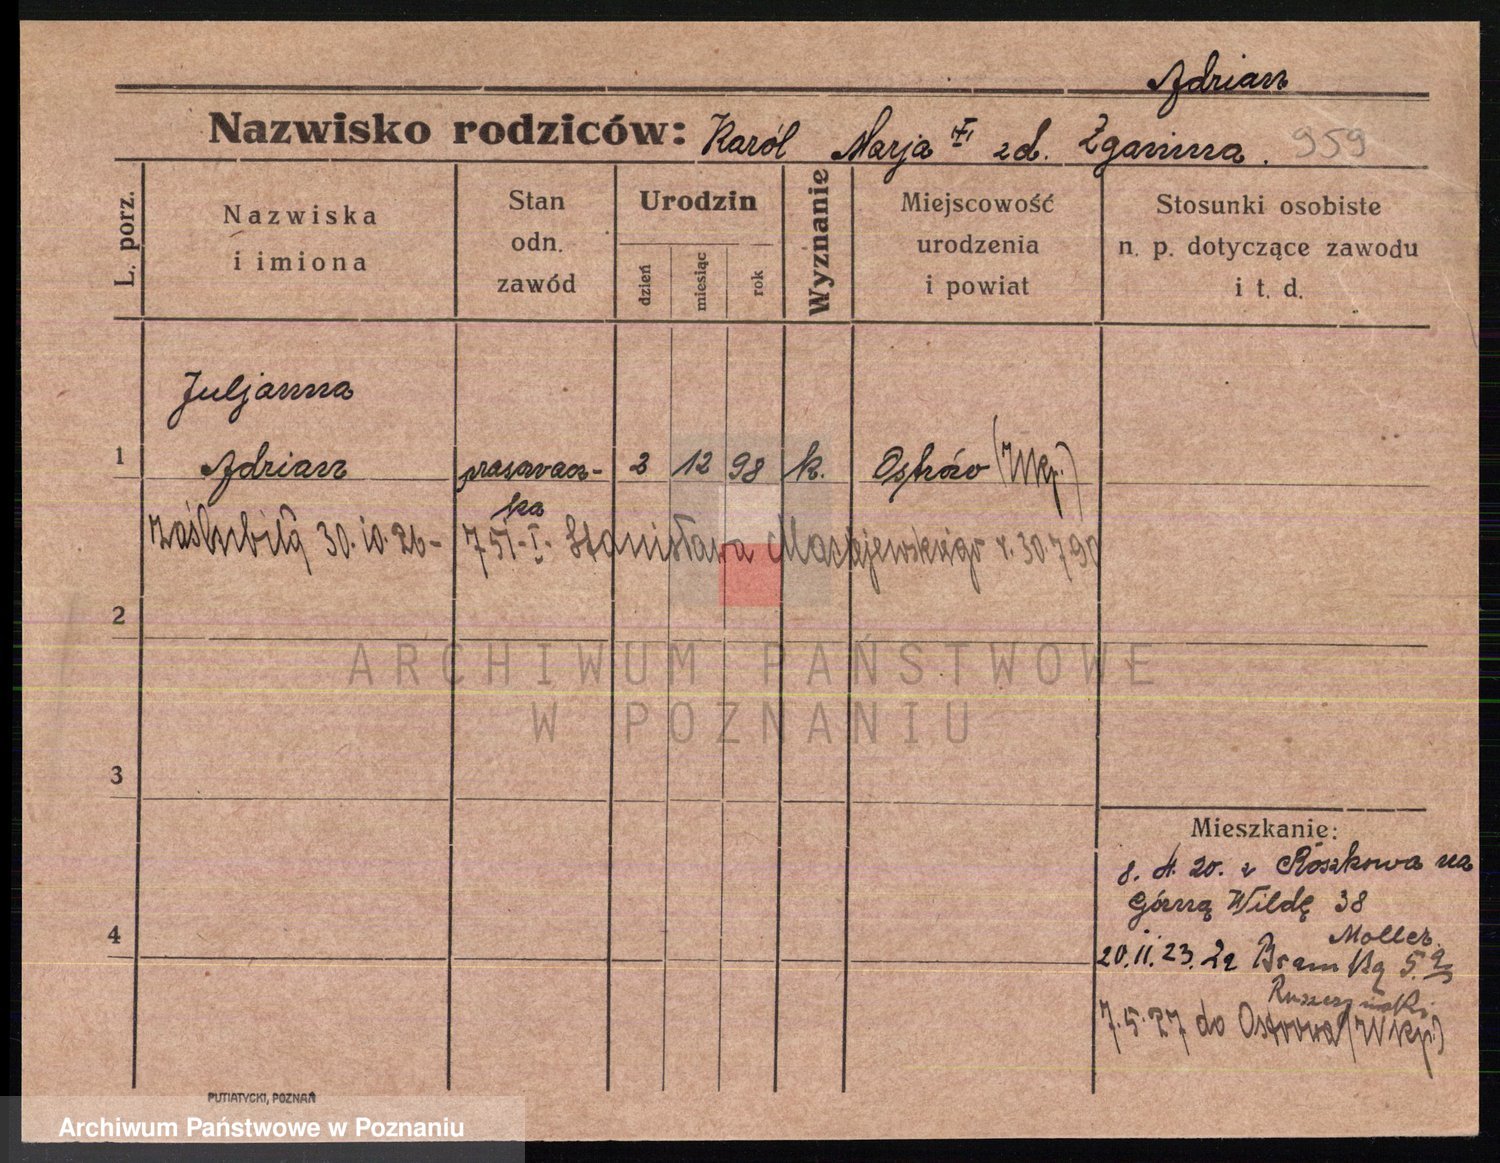 Adrian
Nazwisko rodziców: Karól Marja zd. Zganina. 959
L. porz.
Nazwiska
i imiona
Stan
odn.
zawód
Urodzin
dzień
miesiąc
rok
Wyznanie
Miejscowość
urodzenia
i powiat
Stosunki osobiste
n. p. dotyczące zawodu
i t. d.
Juljanna
1 Adrian prasowacz- 2 12 98 k. Ostrów (Wkp.)
ka
zaślubiła 30.10.26 - 751-I. Stanisława Maciejewskiego r. 30.7.90
2
ARCHIWUM PAŃSTWOWE
W POZNANIU
3
Mieszkanie:
8. 4. 20. z Roszkowa na
Górną Wildę 38
4
Moller.
20.11.23. za Bramką 5.
7.5.27 do Ostrowa (Wkp.)
PUTIATYCKI, POZNAŃ
Archiwum Państwowe w Poznaniu